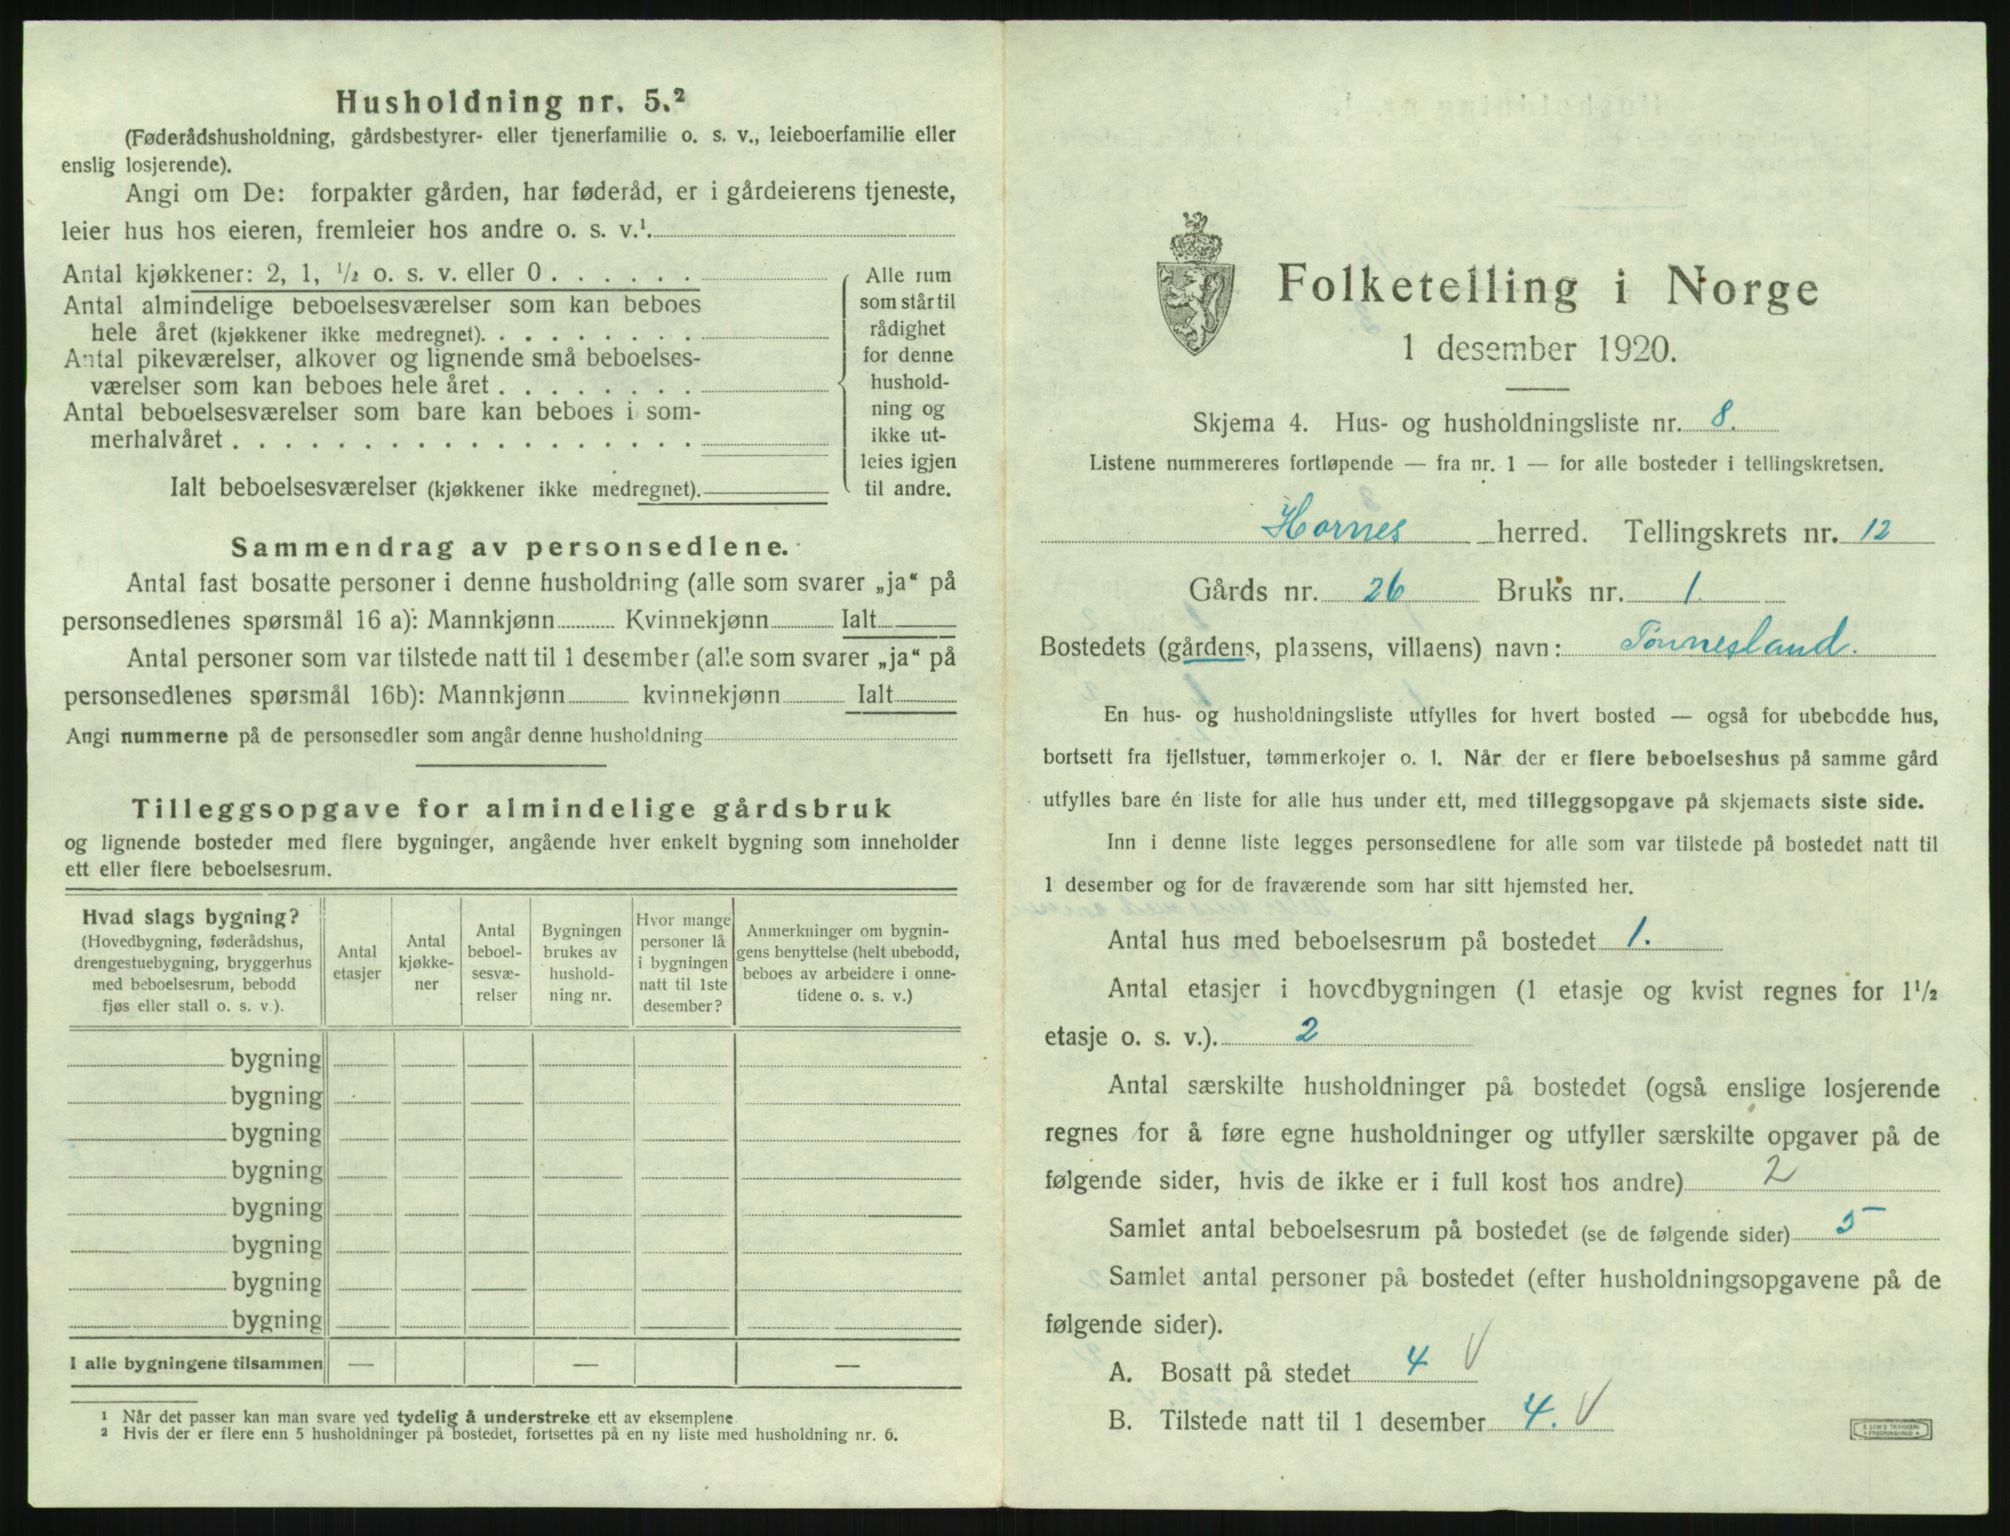 Husholdning nr. 5.²
(Føderådshusholdning, gårdsbestyrer- eller tjenerfamilie o. s. v., leieboerfamilie eller
enslig losjerende).
Angi om De: forpakter gården, har føderåd, er i gårdeierens tjeneste,
leier hus hos eieren, fremleier hos andre o. s. v.¹
Antal kjøkkener: 2, 1, ½ o. s. v. eller 0
Antal almindelige beboelsesværelser som kan beboes
hele året (kjøkkener ikke medregnet)
Antal pikeværelser, alkover og lignende små beboelses-
værelser som kan beboes hele året
Antal beboelsesværelser som bare kan beboes i som-
merhalvåret
Ialt beboelsesværelser (kjøkkener ikke medregnet)
Alle rum
som står til
rådighet
for denne
hushold-
ning og
ikke ut-
leies igjen
til andre.
Sammendrag av personsedlene.
Antal fast bosatte personer i denne husholdning (alle som svarer „ja“ på
personsedlenes spørsmål 16 a): Mannkjønn Kvinnekjønn Ialt
Antal personer som var tilstede natt til 1 desember (alle som svarer „ja“ på
personsedlenes spørsmål 16b): Mannkjønn kvinnekjønn Ialt
Angi nummerne på de personsedler som angår denne husholdning
Tilleggsopgave for almindelige gårdsbruk
og lignende bosteder med flere bygninger, angående hver enkelt bygning som inneholder
ett eller flere beboelsesrum.
Hvad slags bygning?
(Hovedbygning, føderådshus,
drengestuebygning, bryggerhus
med beboelsesrum, bebodd
fjøs eller stall o. s. v.).
Antal
etasjer
Antal
kjøkke-
ner
Antal
beboel-
sesvæ-
relser
Bygningen
brukes av
hushold-
ning nr.
Hvor mange
personer lå
i bygningen
natt til 1ste
desember?
Anmerkninger om bygnin-
gens benyttelse (helt ubebodd,
beboes av arbeidere i onne-
tidene o. s. v.)
bygning
bygning
bygning
bygning
bygning
bygning
bygning
bygning
I alle bygningene tilsammen — — —
¹ Når det passer kan man svare ved tydelig å understreke ett av eksemplene
² Hvis der er flere enn 5 husholdninger på bostedet, fortsettes på en ny liste med husholdning nr. 6.
Folketelling i Norge
1 desember 1920.
Skjema 4. Hus- og husholdningsliste nr. 8.
Listene nummereres fortløpende — fra nr. 1 — for alle bosteder i tellingskretsen.
Hornes herred. Tellingskrets nr. 12
Gårds nr. 26 Bruks nr. 1.
Bostedets (gårdens, plassens, villaens) navn: Tønnesland.
En hus- og husholdningsliste utfylles for hvert bosted — også for ubebodde hus,
bortsett fra fjellstuer, tømmerkojer o. l. Når der er flere beboelseshus på samme gård
utfylles bare én liste for alle hus under ett, med tilleggsopgave på skjemaets siste side.
Inn i denne liste legges personsedlene for alle som var tilstede på bostedet natt til
1 desember og for de fraværende som har sitt hjemsted her.
Antal hus med beboelsesrum på bostedet 1.
Antal etasjer i hovedbygningen (1 etasje og kvist regnes for 1½
etasje o. s. v.). 2
Antal særskilte husholdninger på bostedet (også enslige losjerende
regnes for å føre egne husholdninger og utfyller særskilte opgaver på de
følgende sider, hvis de ikke er i full kost hos andre) 2
Samlet antal beboelsesrum på bostedet (se de følgende sider) 5
Samlet antal personer på bostedet (efter husholdningsopgavene på de
følgende sider).
A. Bosatt på stedet 4 V
B. Tilstede natt til 1 desember 4. V